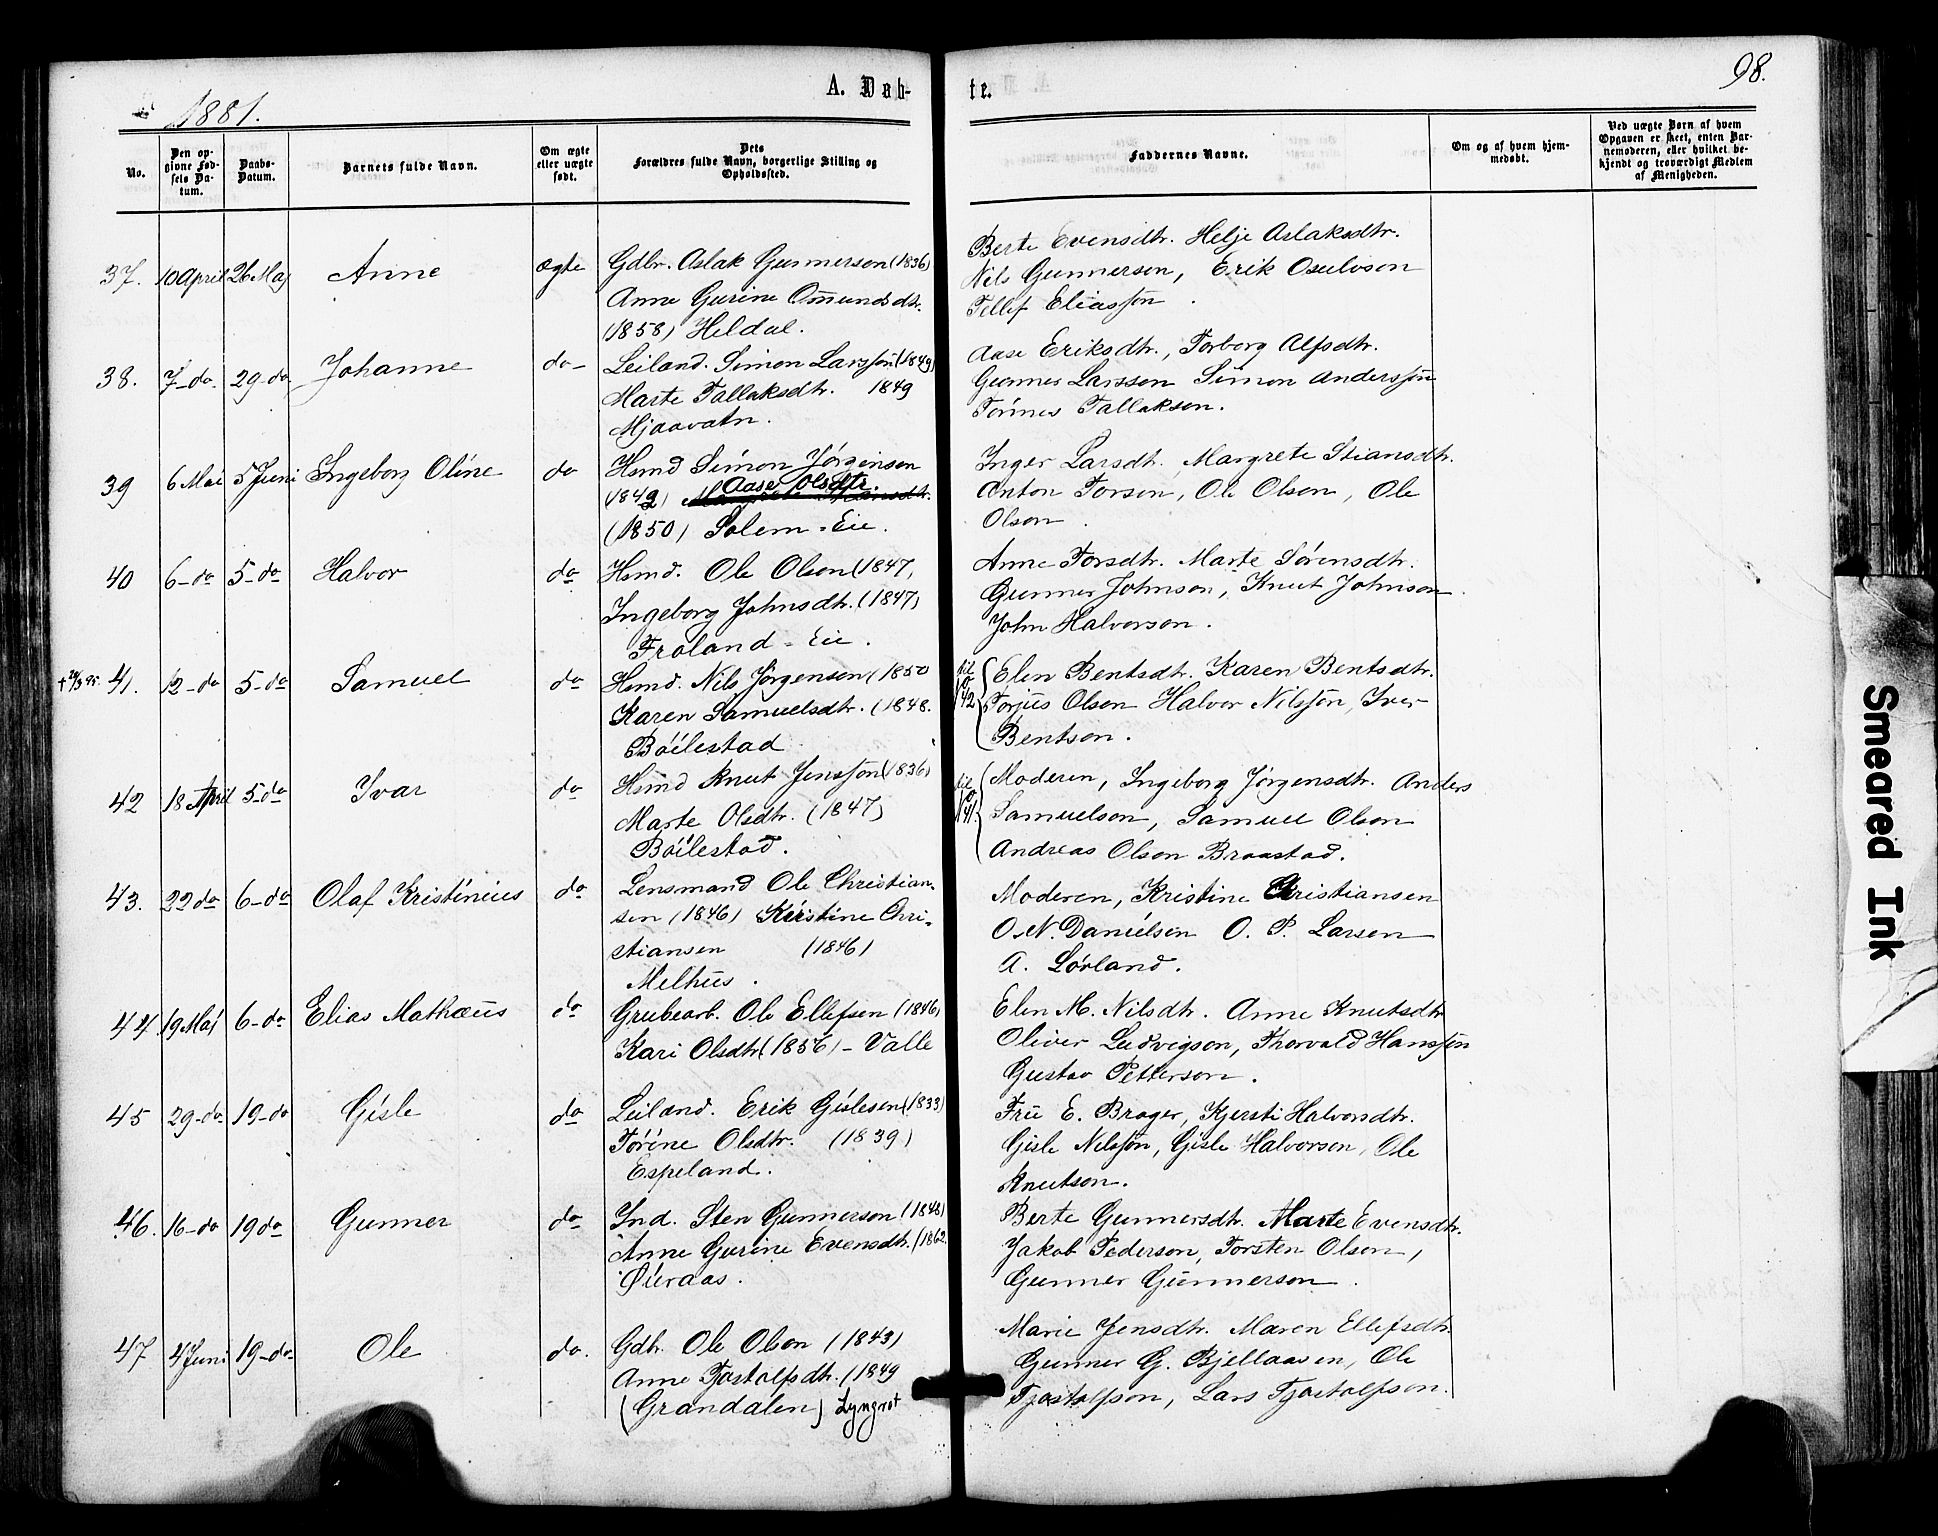 98.
1881.
A. Døb-
te.
No.
Den op-
givne Fød-
sels Da-
tum.
Daabs-
Datum.
Barnets fulde Navn.
Om ægte
eller uægte
født.
Dets
Forældres fulde Navn, borgerlige Stilling og
Opholdssted.
Faddernes Navne.
Om og af hvem hjem-
medøbt.
Ved uægte Børn af hvem
Opgaven er skeet, enten Bar-
nemoderen, eller hvilket be-
kjendt og troværdigt Medlem
af Menigheden.
37. 10 April 26 Maj Anne ægte Gdbr. Aslak Gunnerson (1836)
Anne Gurine Omundsdtr.
(1858) Heldal.
Berte Evensdtr. Helje Aslaksdtr.
Nils Gunnerson, Erik Osulvson
Tellef Eliasson.
38. 7-do. 29-do Johanne do- Leiland. Simon Larsson (1849)
Marte Tallaksdtr. 1849
Mjaavatn.
Aase Eriksdtr., Torborg Alfsdtr.
Gunner Larsson Simon Andersson
Tønnes Tallakson.
39 6 Mai 5 Juni Ingeborg Oline do Hsmd Simon Jørgensen
(1849) Aase Olsdtr.
(1850) Solem-Eie.
Inger Larsdtr. Margrete Stiansdtr.
Anton Torson, Ole Olson, Ole
Olson.
40 6-do 5-do Halvor do Hsmd. Ole Olson (1847,
Ingeborg Johnsdtr. (1847)
Froland-Eie.
Anne Torsdtr. Marte Sørensdtr.
Gunner Johnson, Knut Johnson.
John Halvorson.
41. 12-do 5-do Samuel do Hsmd. Nils Jørgenson (1850
Karen Samuelsdtr. (1848.
Böilestad
til No 42 Elen Bentsdtr. Karen Bentsdtr.
Torjus Olson Halvor Nilsson, Iver
Bentson.
42 18 April 5-do Ivar do Hsmd Knut Jensson (1836)
Marte Olsdtr. (1847)
Böilestad.
til No 41. Moderen, Ingeborg Jørgensdtr. Anders
Samuelson, Samuel Olson
Andreas Olson Braastad.
43. 22 do 6-do Olaf Kristinius do Lensmand Ole Christian-
sen (1846) Kirstine Chri-
stiansen (1846)
Melhus.
Moderen, Kristine Christiansen
O. N. Danielsen O. P. Larsen
A. Lørland.
44. 19 Maj 6-do Elias Mathæus do Grubearb. Ole Ellefsen (1846)
Kari Olsdtr (1856) - Valle
Elen M. Nilsdtr. Anne Knutsdtr
Oliver Ludvigson, Thorvald Hansson
Gustav Petterson.
45 29-do 19-do Gisle do Leiland. Erik Gislesen (1833)
Torine Olsdtr. (1839)
Espeland.
Fru E. Brager, Kjersti Halvorsdtr.
Gisle Nilsson, Gisle Halvorson, Ole
Knutson.
46. 16-do 19 do Gunner do Ind. Sten Gunnerson (1848)
Anne Gurine Evensdtr. (1862.
Øuraas.
Berte Gunnersdtr. Marte Evensdtr.
Jakob Pederson, Torsten Olson,
Gunner Gunnerson.
47 4 Juni 19-do Ole do. Gdb. Ole Olson (1843)
Anne Tjostolfsdtr. (1849
(Grandalen) Lyngrot
Marie Jensdtr. Maren Ellefsdtr.
Gunner G. Bjellaasen, Ole
Tjostolfson, Lars Tjostolfson.
Smeared Ink